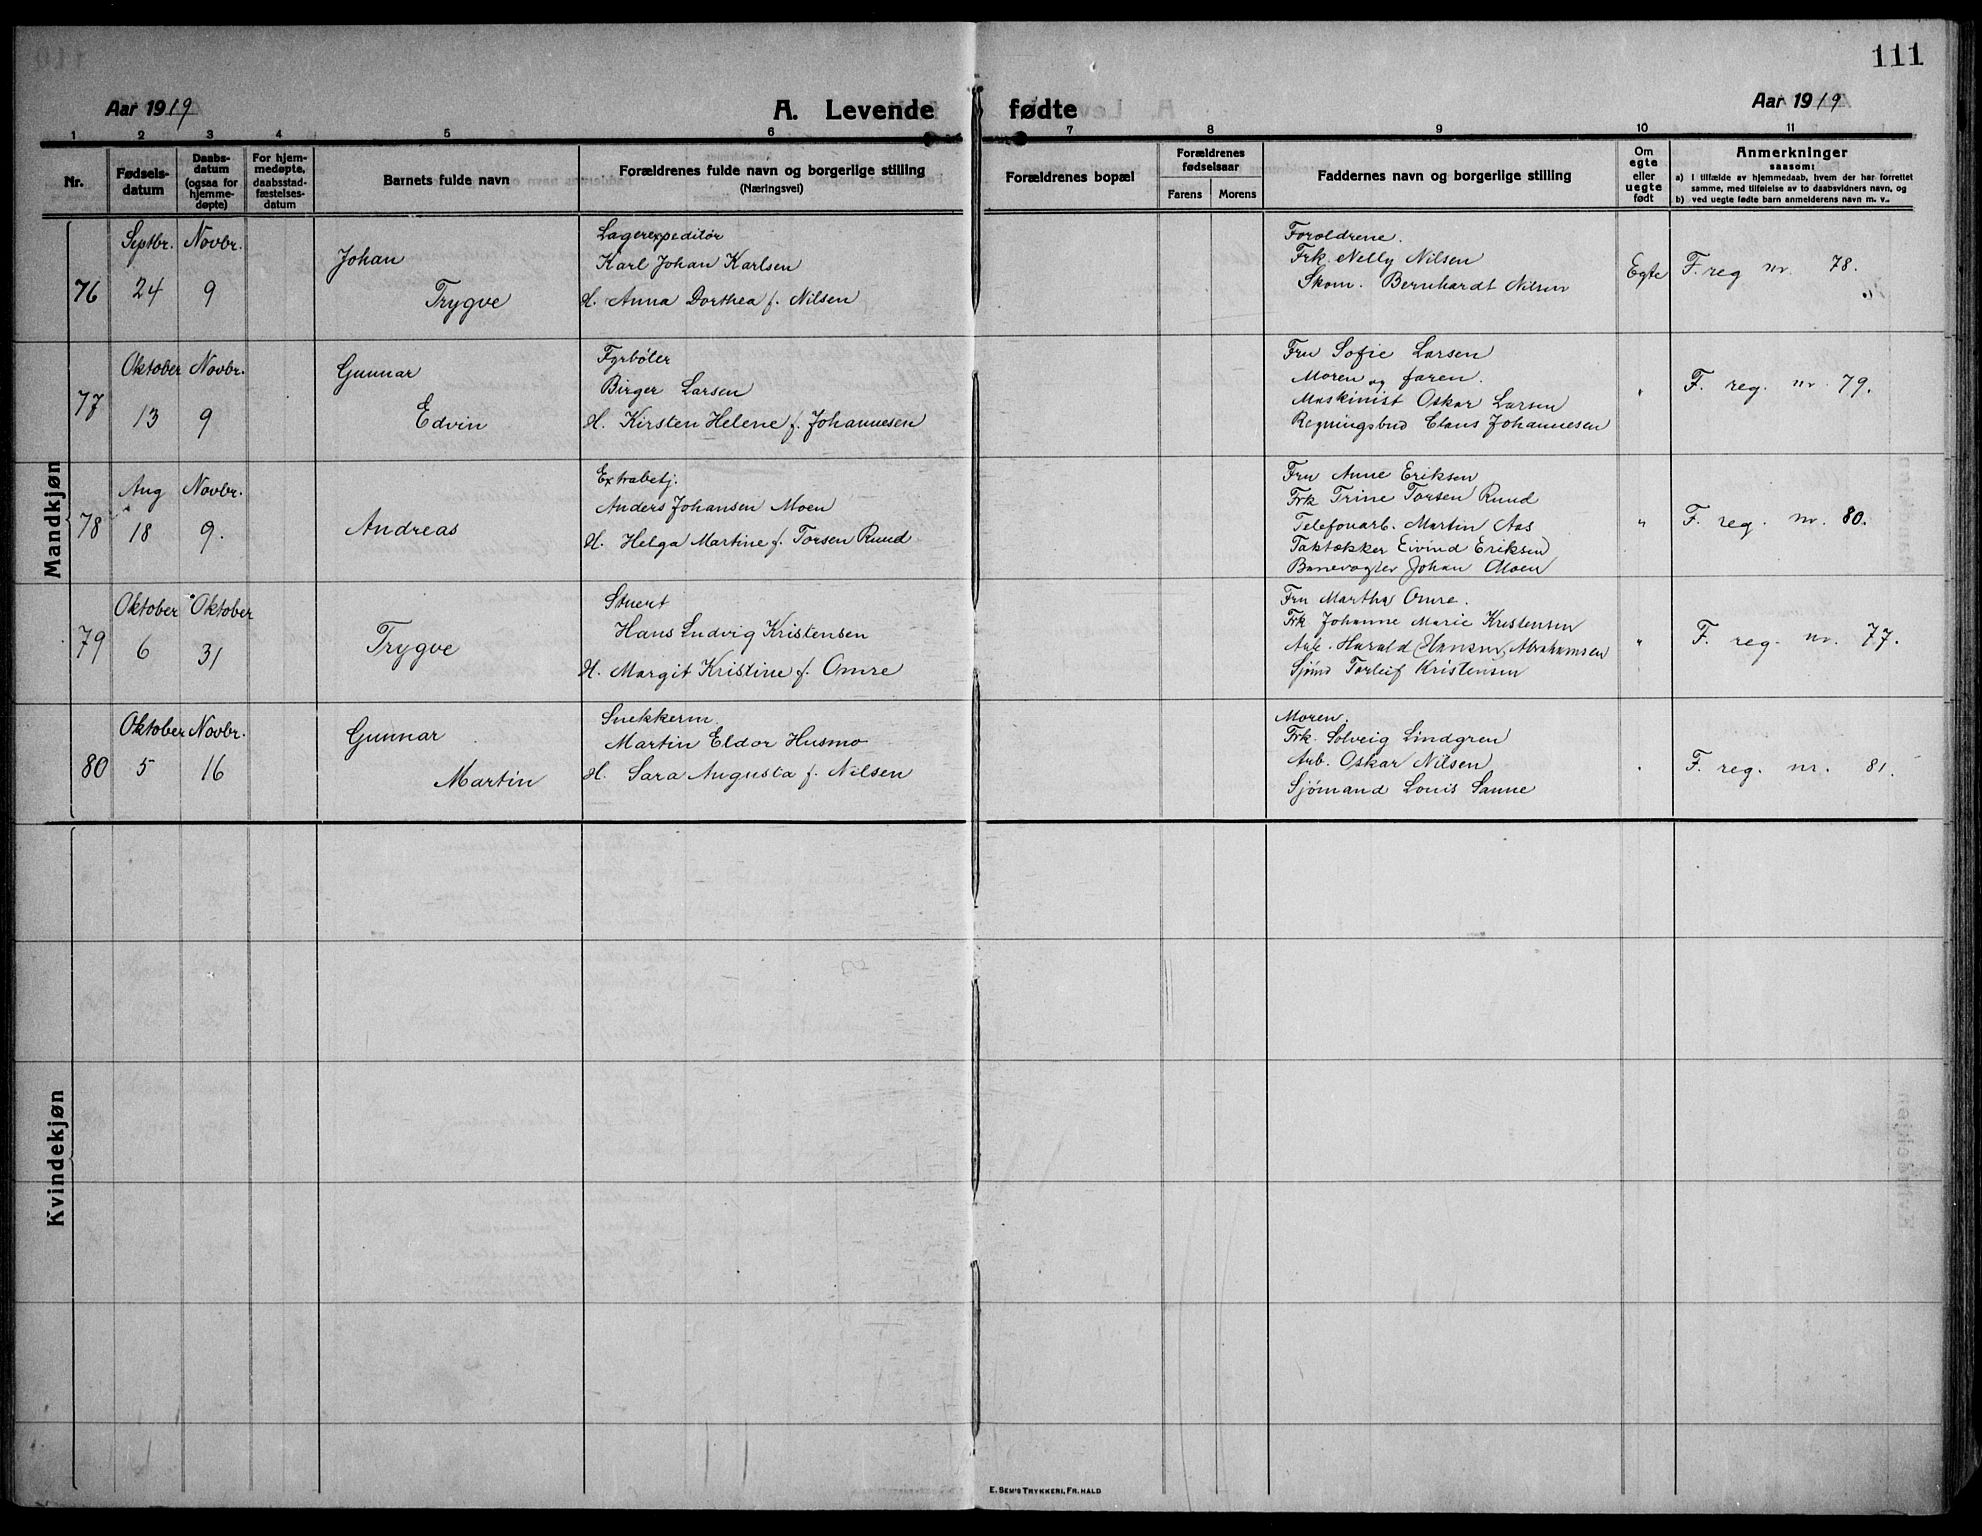 111
Aar 1919
A. Levende fødte
Aar 1919
1 2 3 4 5 6 7 8 9 10 11
Nr.
Fødsels-
datum
Daabs-
datum
(ogsaa for
hjemme-
døpte)
For hjem-
medøpte,
daabsstad-
fæstelses-
datum
Barnets fulde navn
Forældrenes fulde navn og borgerlige stilling
(Næringsvei)
Forældrenes bopæl
Forældrenes
fødselsaar
Farens Morens
Faddernes navn og borgerlige stilling
Om
egte
eller
uegte
født
Anmerkninger
saasom:
a) I tilfælde av hjemmedaab, hvem der har forrettet
samme, med tilføielse av to daabsvidners navn, og
b) ved uegte fødte barn anmelderens navn m. v.
Mandkjøn
76
Septbr.
24
Novbr.
9
Johan
Trygve
Lagerexpeditör
Karl Johan Karlsen
H. Anna Dorthea f. Nilsen
Foroldrene.
Frk. Nelly Nilsen
Skom. Bernhardt Nilsen
Egte
F. reg nr. 78.
77
Oktober
13
Novbr.
9
Gunnar
Edvin
Fyrböter
Birger Larsen
H. Kirsten Helene f. Johannesen
Fru Sofie Larsen
Moren og faren.
Maskinist Oskar Larsen
Regningsbud Claus Johannesen
"
F. reg. nr. 79.
78
Aug
18
Novbr.
9.
Andreas
Extrabetj.
Anders Johansen Moen
H. Helga Martine f. Torsen Ruud
Fru Anne Eriksen
Frk Trine Torsen Ruud
Telefonarb. Martin Aas
Taktækker Eivind Eriksen
Banevogter Johan Moen
"
F. reg. nr. 80.
79
Oktober
6
Oktober
31
Trygve
Stuert
Hans Ludvig Kristensen
H. Margit Kristine f. Omre
Fru Martha Omre.
Frk Johanne Marie Kristensen
Arb. Harald Hansen Abrahamsen
Sjömd Torleif Kristensen
"
F. reg. nr. 77.
80
Oktober
5
Novbr.
16
Gunnar
Martin
Snekkerm.
Martin Eldor Husmo
H. Sara Augusta f. Nilsen
Moren.
Frk. Solveig Lindgren
Arb. Oskar Nilsen
Sjömand Louis Sanne
"
F. reg. nr. 81.
Kvindekjøn
E. SEM'S TRYKKERI, FR.HALD